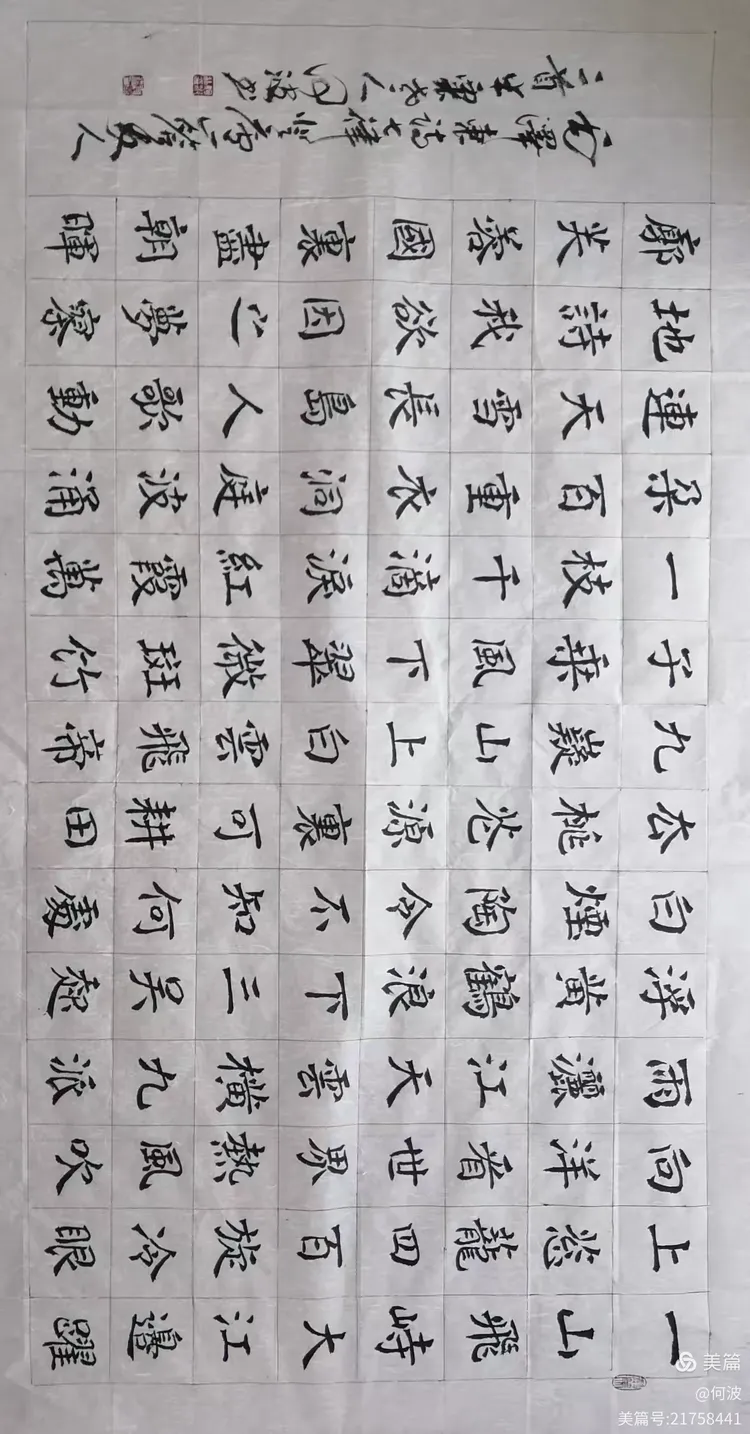 一山飛峙大江邊躍
上葱龍四百旋冷眼
向洋看世界熱風吹
雨灑江天雲橫九派
浮黃鶴浪下三吳起
白煙陶令不知何處
去桃花源裏可耕田
九嶷山上白雲飛帝
子乘風下翠微斑竹
一枝千滴淚紅霞萬
朵百重衣洞庭波涌
連天雪長島人歌動
地詩我欲因之夢寥
廓芙蓉國裏盡朝暉
毛澤東詩七律登廬山答友人
二首 人何波书
美篇
@何波
美篇号:21758441